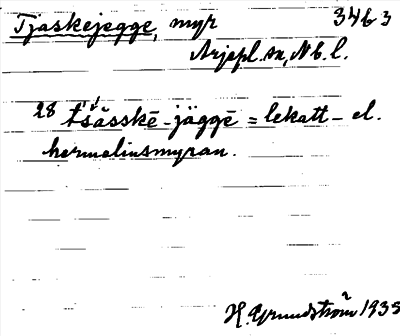 Tjaskejegge, myr 3463
Arjepl. sn, Nb. l.
28 t'śå̄sskē-jäggē = lekatt- el.
hermelinsmyran.
H. Grundström 1935